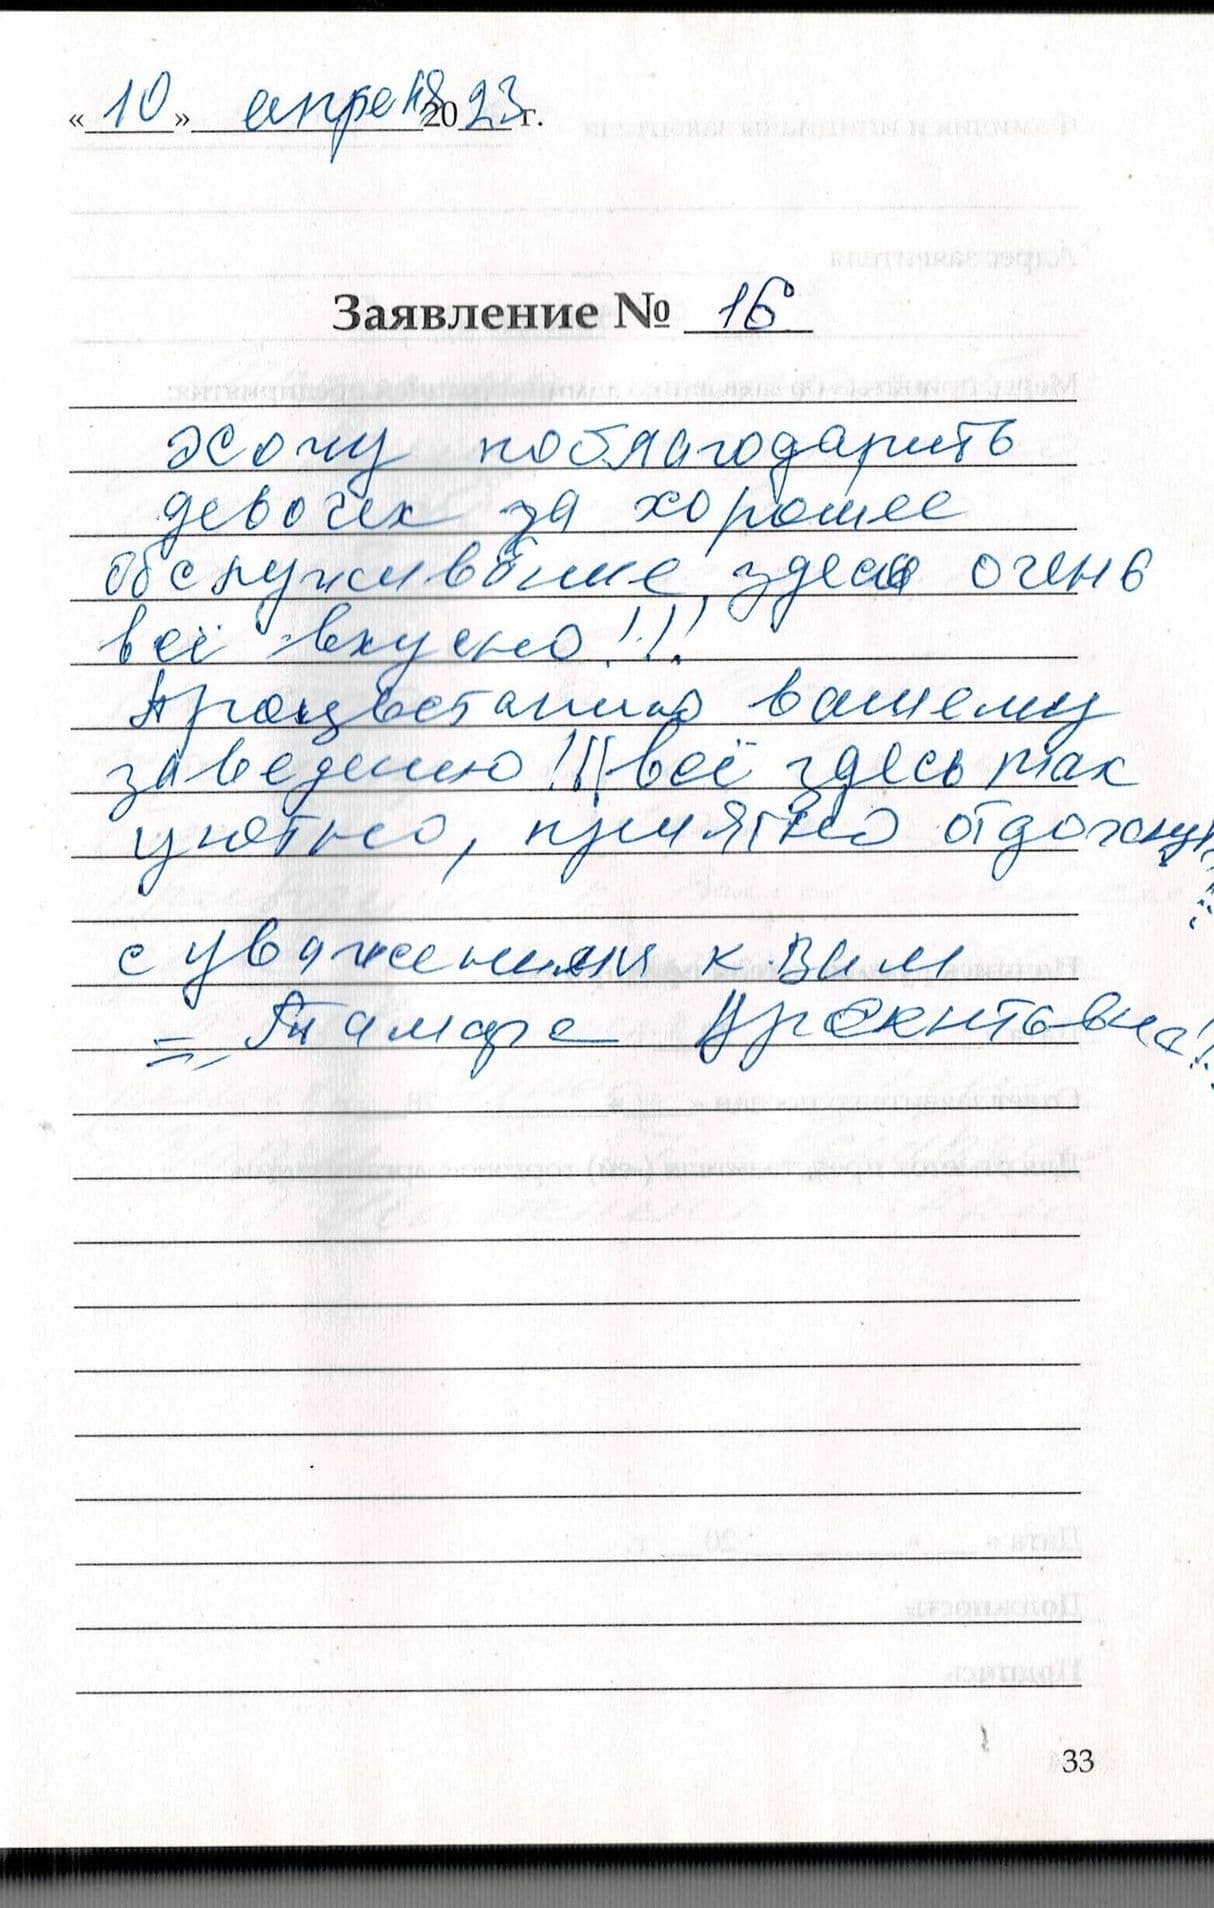 «10» апреля 2023 г.
Заявление № 16
Хочу поблагодарить
девочек за хорошее
обслуживание, здесь очень
всё вкусно!!!
Процветанию вашему
заведению!!! всё здесь так
уютно, приятно отдохнуть
!!!
с уважением к Вам
=
33